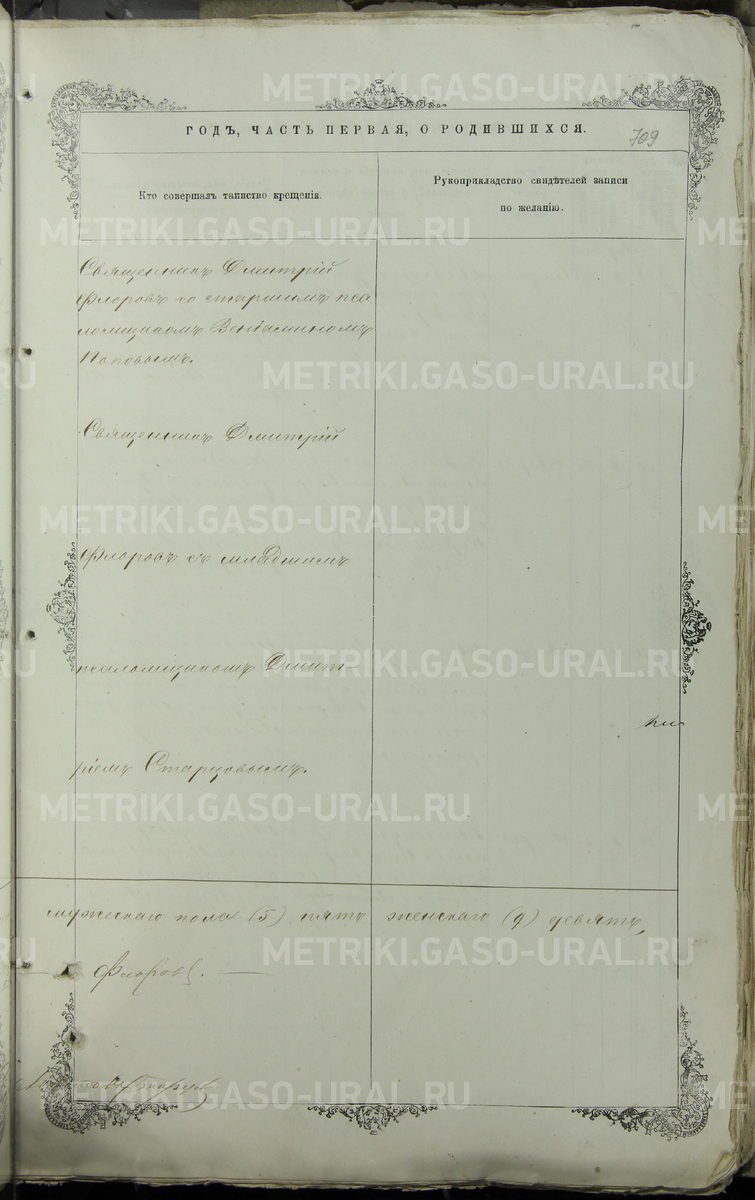 METRIKI.GASO-URAL.RU
709
ГОДЪ, ЧАСТЬ ПЕРВАЯ, О РОДИВШИХСЯ.
Кто совершалъ таинство крещенія.
Рукоприкладство свидѣтелей записи
по желанію.
Священникъ Дмитрій
Флоровъ со старшимъ пса
ломщикомъ Веніаминомъ
Поповымъ.
Священникъ Дмитрій
Флоровъ съ младшимъ
псаломщикомъ Димит-
ріемъ Старцовымъ.
мужескаго пола (5) пять женскаго (9) девять,
Флоровъ.